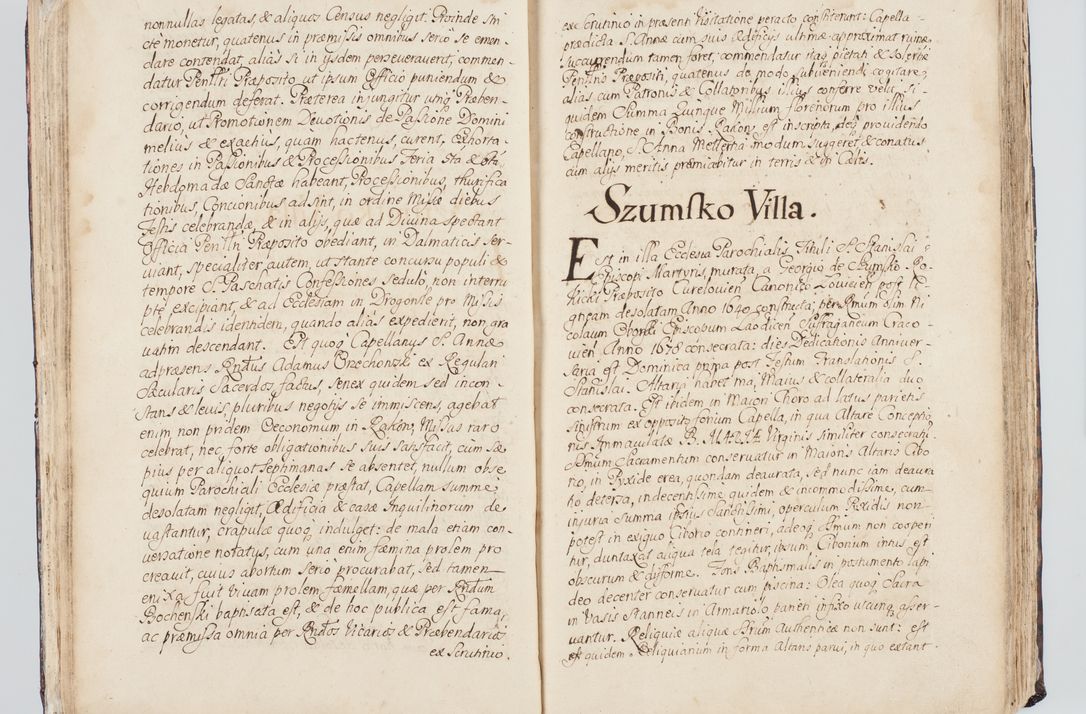 nonnullas legatas, & aliquos Census negligit. Proinde stri
cte monetur, quatenus in præmissis omnibus serio se emen-
dare contendat, alias si in ijsdem perseveraverit, commen-
datur Præposito ut ipsum Officio puniendum &
corrigendum deferat. Præterea injungitur Præben-
dario, ut Promotionem Devotionis de Passione Domini
melius & exactius, quàm hactenus, curent, Exhorta-
tiones in Passionibus & Processionibus Feria 6ta &
Hebdomadæ Sanctæ habeant, Processionibus, thurifica
tionibus, Concionibus adsint, in ordine Missæ diebus
Festis celebrandæ, & in alijs, quæ ad Divina spectant
Officia Præposito obediant, in Dalmaticis ser-
viant, specialiter autem, ut stante concursu populi &
tempore S. Paschatis Confessiones sedulo, non interru
ptè excipiant, & ad Ecclesiam in Drogonste pro Missis
celebrandis identidem, quando alias expedierit, non gra
vatim descendant. Est quoq Capellanus S. Annæ
adpræsens Rndus Adamus Orzechowski ex Regulari
Sæcularis Sacerdos factus, senex quidem sed incon-
stans & levis, pluribus negotijs se immiscens, agebat
enim non pridem Oeconomum in Rakow, Missas raro
celebrat, nec forte obligationibus suis satisfacit, cum sæ
pius per aliquot septimanas se absentet, nullum obse
quium Parochiali Ecclesiæ præstat, Capellam summè
desolatam negligit, Ædificia & casæ Inquilinorum de
vastantur, crapulæ quoq indulget: de mala etiam con-
versatione notatus, cum una enim fæmina prolem pro
creavit, cuius abortum serio procurabat, sed tamen
enixa fuit vivam prolem fæmellam, quæ per Rndum
Bochenski baptisata est, & de hoc publica est fama,
ac præmissa omnia per Rndos Vicarios & Præbendarios
ex Scrutinio.
ex Scrutinio in præsenti Visitatione peracto constiterunt: Capella
prædicta S. Annæ cum suis Ædificijs ultimæ approximat ruinæ,
succurrendum tamen foret, commendatur itaq pietati & solertiæ
Præpositi, quatenus de modo subveniendi cogitare,
alias cum Patronis & Collatoribus illius conferre velit, si-
quidem Summa Quinque Millium florenorum pro illius
constructione in Bonis Rakow est inscripta, deq providendo
Capellano, S. Anna Mettertia modum suggeret & conatus
cum alijs meritis præmiabitur in terris & in Cælis.
Szumsko Villa.
Est in illa Ecclesia Parochialis Tituli S. Stanislai
Episcopi Martyris, murata, a Georgio de Szumsko Ro-
kicki Præposito Curelovien Canonico Lovicien post li
gneam desolatam Anno 1640 constructa, per Rmum olim Ni
colaum Oborski Episcopum Laodicen Suffraganeum Craco-
vien Anno 1678 consecrata: dies Dedicationis Anniver-
saria est Dominica prima post Festum Translationis S.
Stanislai. Altaria habet tria, Maius & collateralia duo
consecrata. Est ibidem in Maiori Choro ad latus parietis
sinistrum ex opposito fornium Capella, in qua Altare Conceptio
nis Immaculatæ B. MARIÆ Virginis similiter consecrati.
Ssmum Sacramentum conservatur in Maioris Altaris Cibo
rio, in Pixide ærea, quondam deaurata, sed nunc iam deaura
tio detersa, indecentissime quidem & incommodissime, cum
injuria summa ipsius Sanctissimi, operculum Pixidis non
potest in exiguo Ciborio contineri, adeoq Ssmum non cooperi
tur, duntaxat aliqua tela tegitur, ipsum Ciborium intus est
obscurum & difforme. Fons Baptismalis in postumento lapi
deo decenter conservatur cum piscina: Olea quoq Sacra
in Vasis Stanneis in Armariolo parieti infixo utcunq asser-
vantur. Reliquiæ aliquæ SSrum Authenticæ non sunt: est
quidem Reliquiarium in forma Altaris parvi, in quo extant